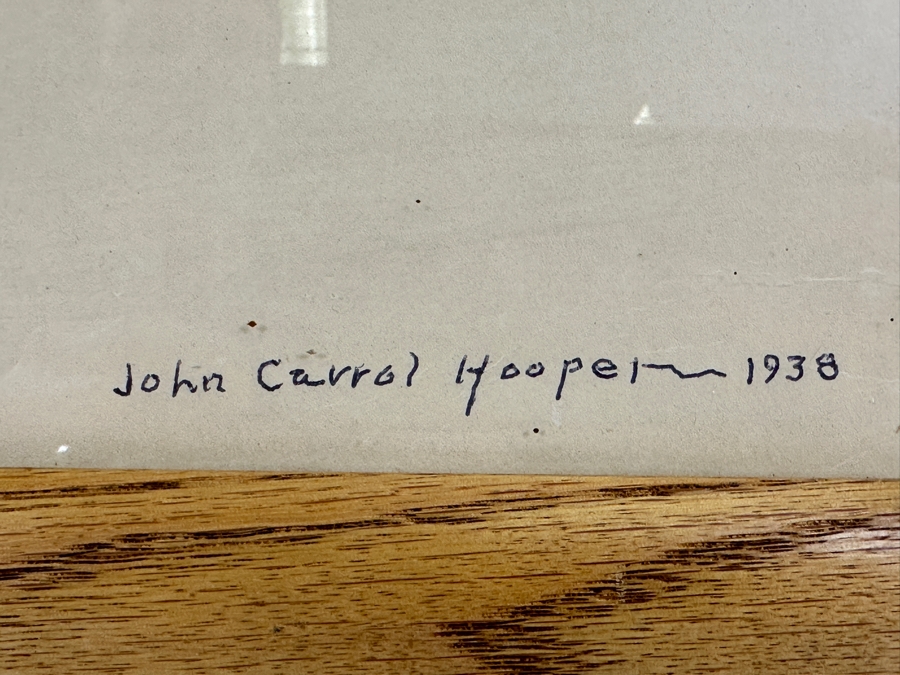 John Carrol Hooper 1938